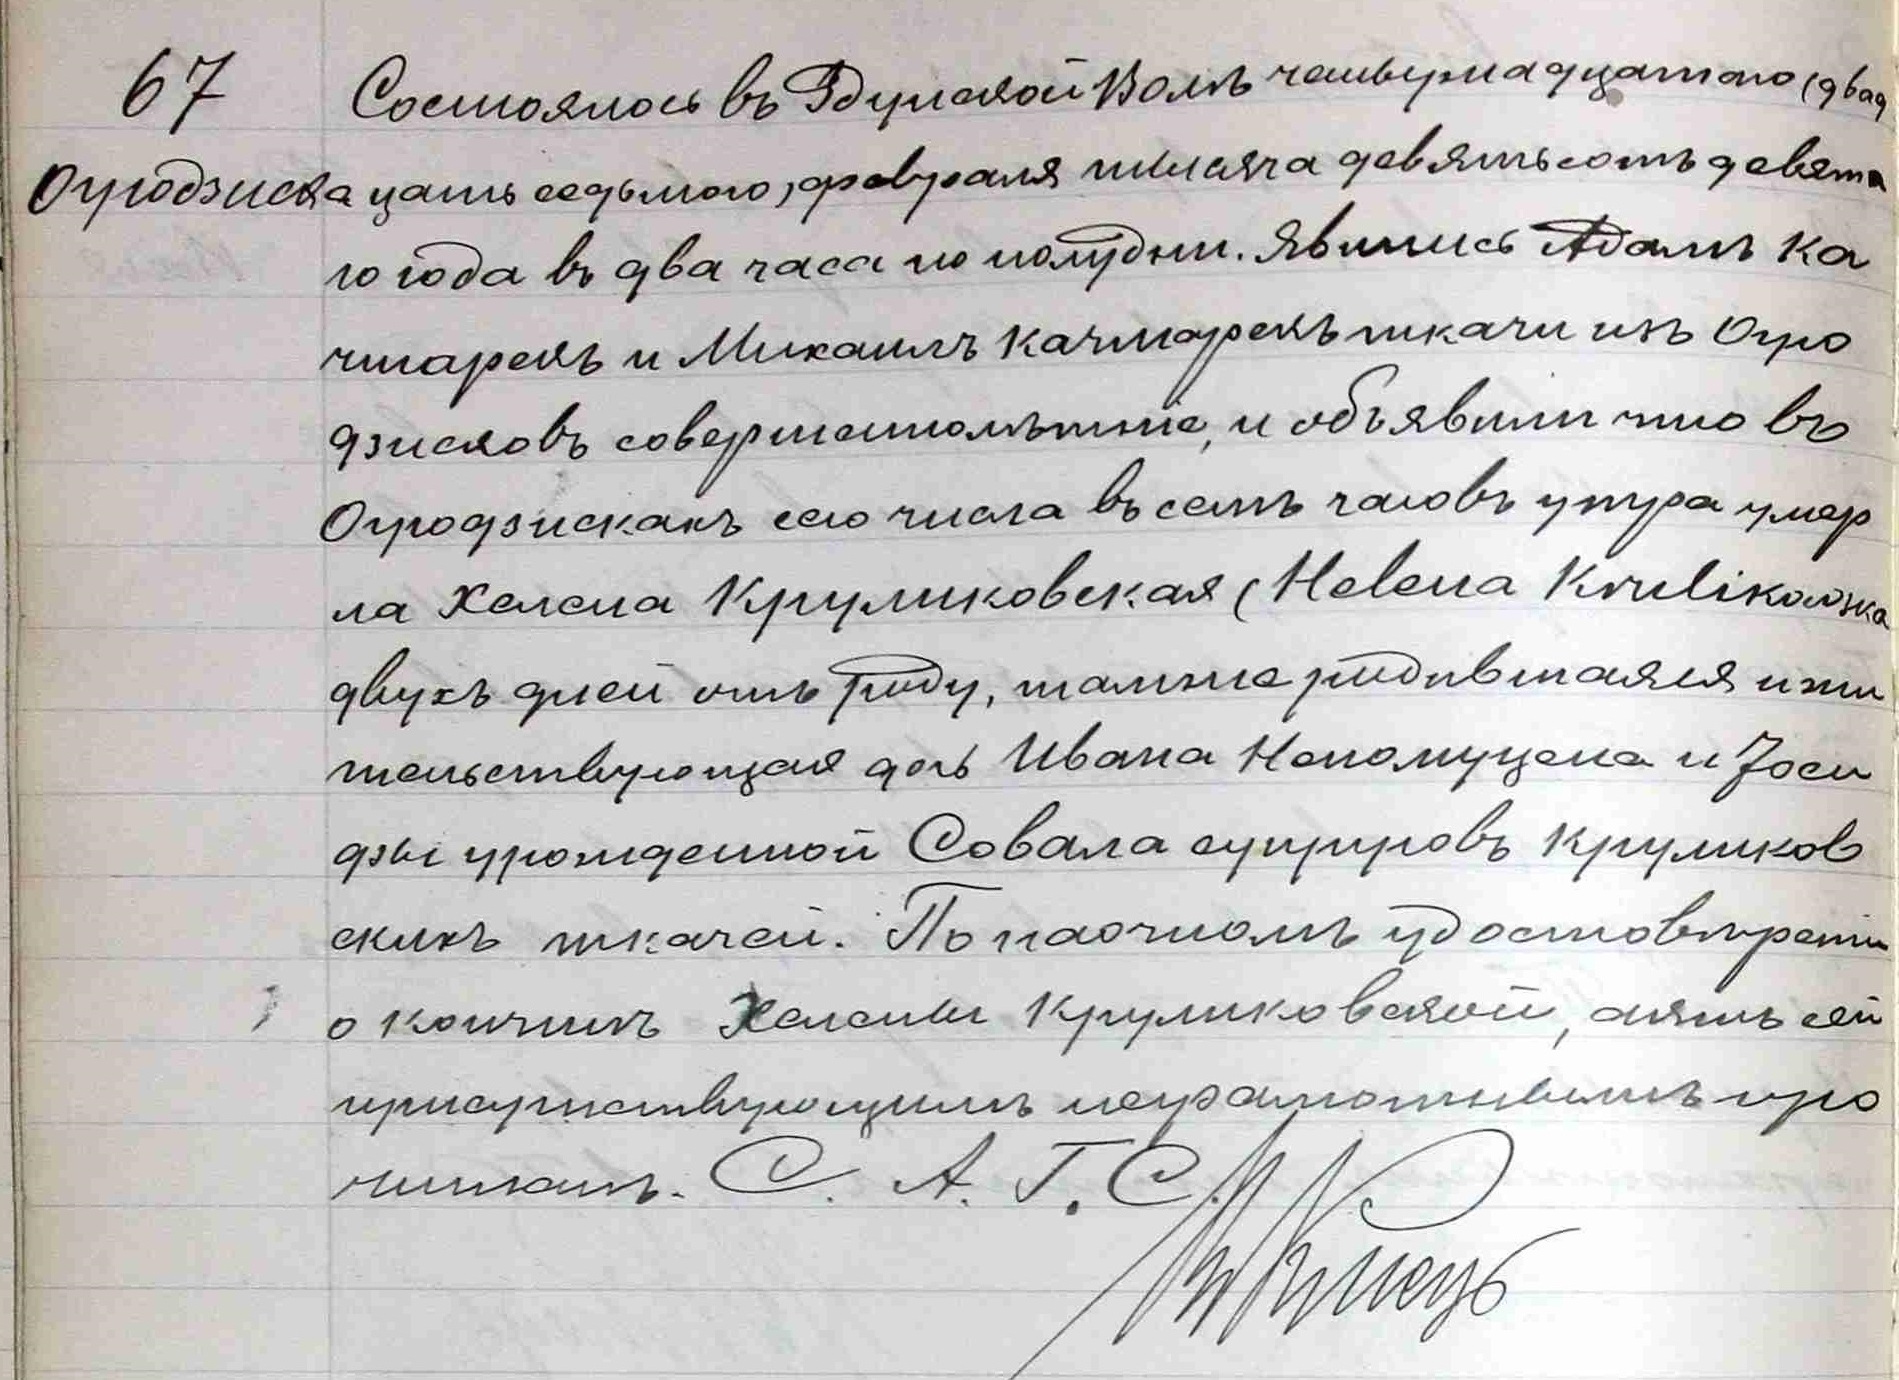 67
Состоялось въ Здунской Воли четырнадцатаго (двад
Огродзиска
цать седьмого) февраля тысяча девятьсотъ девята
го года въ два часа по полудни. Явились Адамъ Ка
чмарекъ и Михаилъ Качмарекъ ткачи изъ Огро
дзисковъ совершеннолѣтніе, и объявили что въ
Огродзискахъ сего числа въ семь часовъ утра умер
ла Хелена Круликовская (Helena Krulikowska
двухъ дней отъ роду, тамже родившаяся и жи
тельствующая дочь Ивана Непомуцена и Іозе
фы урожденной Совала супруговъ Круликов
скихъ ткачей. По наочномъ удостовѣреніи
о кончинѣ Хелены Круликовской, актъ сей
присутствующимъ неграмотнымъ про
читанъ. С. А. Г. С.